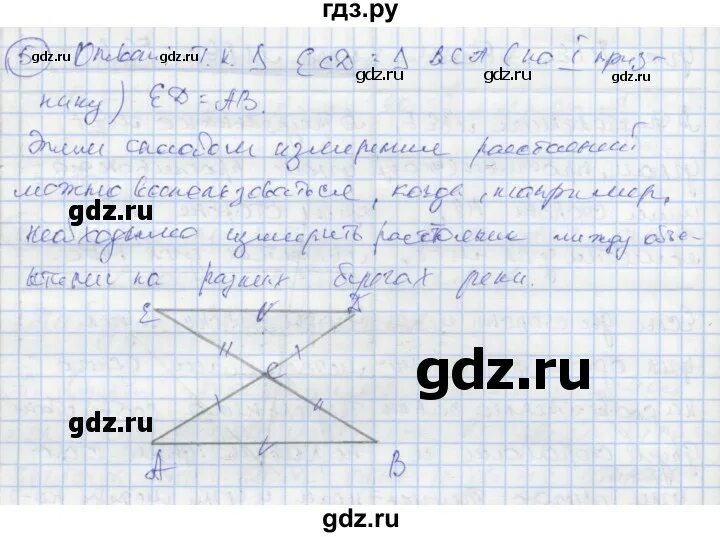 гдз.ру
5) Оправ. т. к. Δ ECD = Δ BCA (по I приз-
gdz.ru gdz.ru gdz.ru
наку) ED = AB.
gdz.ru gdz.ru
Этим способом измерения расстояний
можно воспользоваться, когда, например,
gdz.ru
необходимо измерить расстояние между объе-
ктами на разных берегах реки.
E D
C
gdz.ru
gdz.ru
A B
gdz.ru